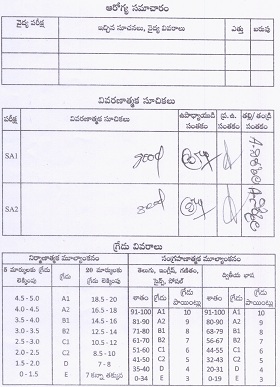 ఆరోగ్య సమాచారం
వైద్య పరీక్ష ఇచ్చిన సూచనలు, వైద్య వివరాలు ఎత్తు బరువు
వివరణాత్మక సూచికలు
పరీక్ష వివరణాత్మక సూచికలు ఉపాధ్యాయుడి సంతకం ప్ర.ఉ. సంతకం తల్లి/తండ్రి సంతకం
SA1 good
SA2 good
గ్రేడు వివరాలు
నిర్మాణాత్మక మూల్యాంకనం సంగ్రహణాత్మక మూల్యాంకనం
5 మార్కులకు లెక్కింపు గ్రేడు 20 మార్కులకు లెక్కింపు తెలుగు, ఇంగ్లీష్, గణితం, సైన్స్, సోషల్ ద్వితీయ భాష
శాతం గ్రేడు గ్రేడు పాయింట్లు శాతం గ్రేడు గ్రేడు పాయింట్లు
4.5 - 5.0 A1 18.5 - 20 91-100 A1 10 90-100 A1 10
4.0 - 4.5 A2 16.5 - 18 81-90 A2 9 80-89 A2 9
3.5 - 4.0 B1 14.5 - 16 71-80 B1 8 68-79 B1 8
3.0 - 3.5 B2 12.5 - 14 61-70 B2 7 56-67 B2 7
2.5 - 3.0 C1 10.5 - 12 51-60 C1 6 44-55 C1 6
2.0 - 2.5 C2 8.5 - 10 41-50 C2 5 32-43 C2 5
1.5 - 2.0 D 7 - 8 35-40 D 4 20-31 D 4
0 - 1.5 E 7 కన్నా తక్కువ 0-34 E 3 0-19 E 3